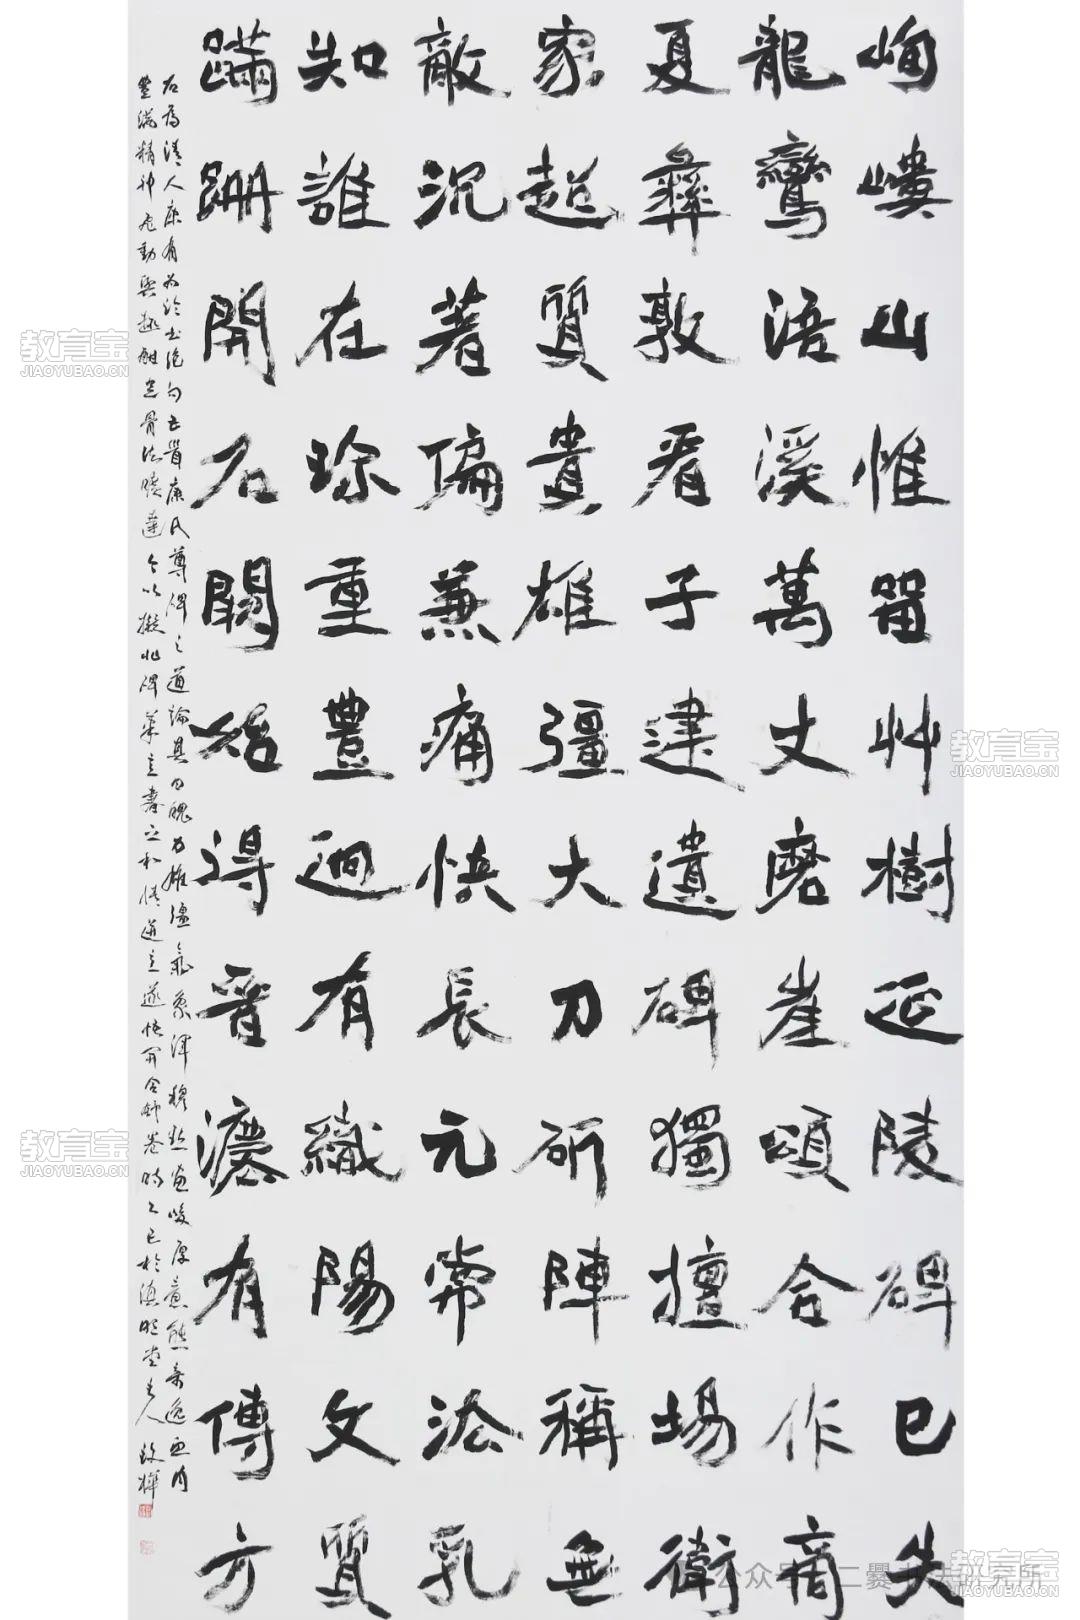 峋嶁山惟留艸樹延陵碑已失
龍鸞浯溪萬丈磨崖頌合作商
夏彝敦看子建遺碑獨擅場衛
家超質貴雄彊大刀斫陣稱無
敵沉著偏兼痛快長元常法乳
知誰在珎重豐迴有織陽文質
蹣跚開石闕始得晉濃有傳方
右為清人康有為論書絕句五首康氏尊碑之道論其曰魄力雄彊氣象渾穆點畫峻厚意態奇逸血肉
豐滋精神飛動興趣酣足骨法 達今以擬北碑筆意書之 遂悟開合舒卷時乙巳於滇
教育宝
JIAOYUBAO.CN
教育宝
JIAOYUBAO.CN
教育宝
JIAOYUBAO.CN
教育宝
JIAOYUBAO.CN
公众号 二爨书法研究所